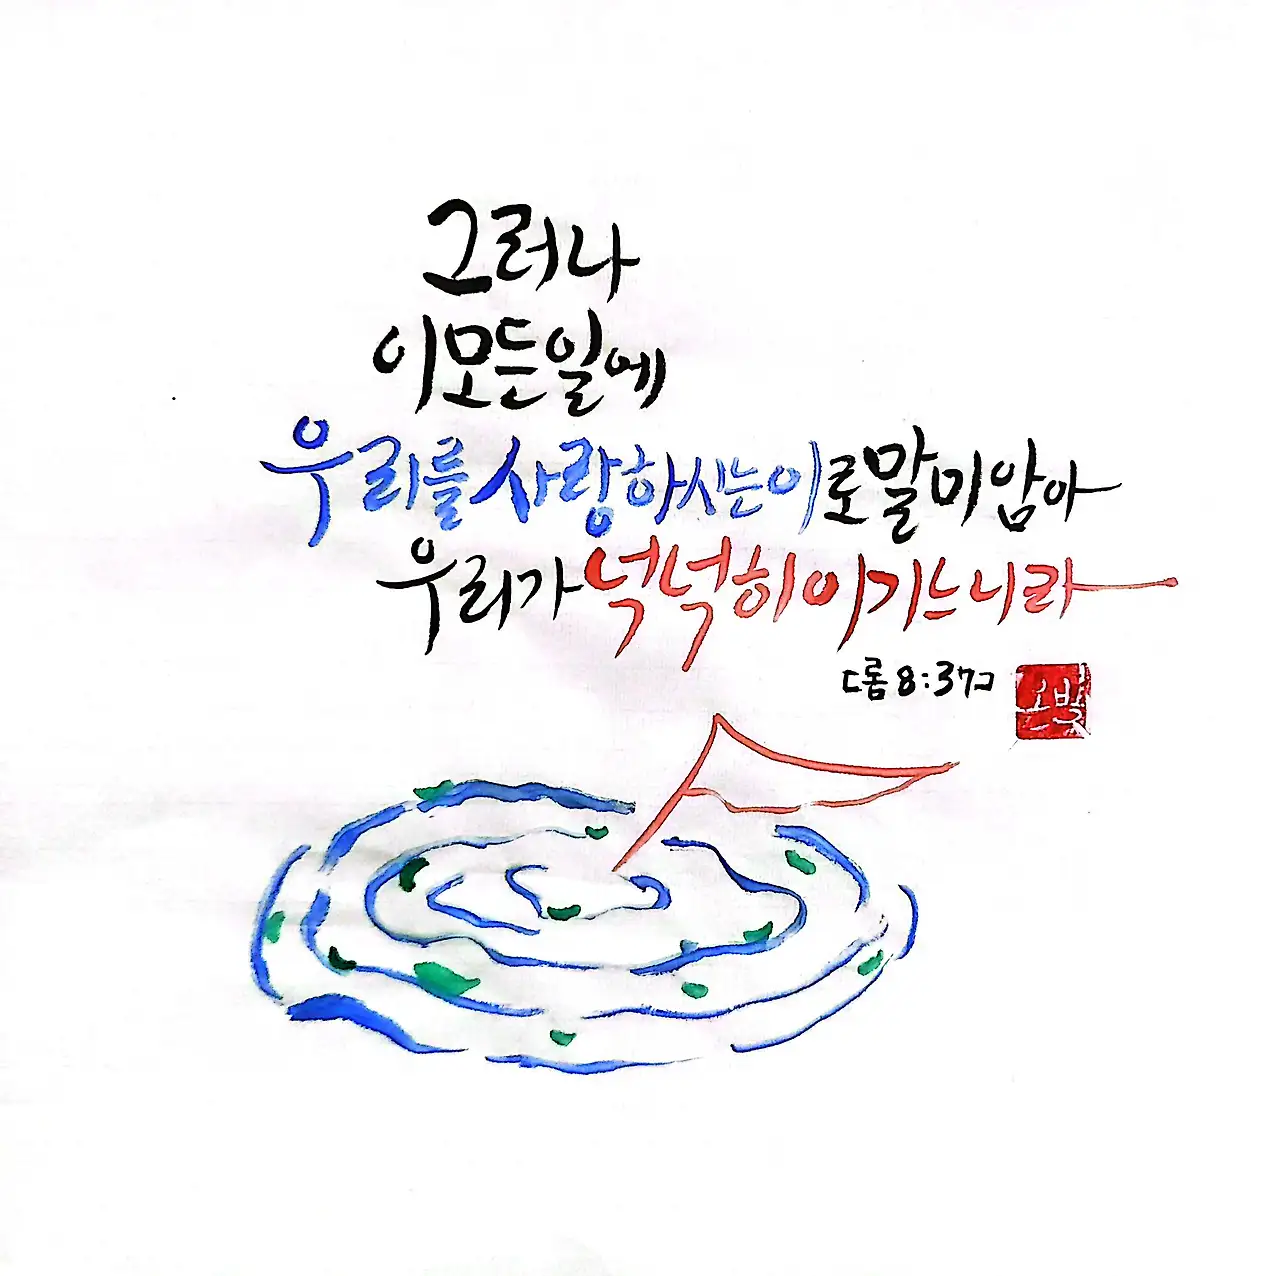 그러나
이 모든 일에
우리를 사랑하시는 이로 말미암아
우리가 넉넉히 이기느니라
[롬 8:37]
은빛